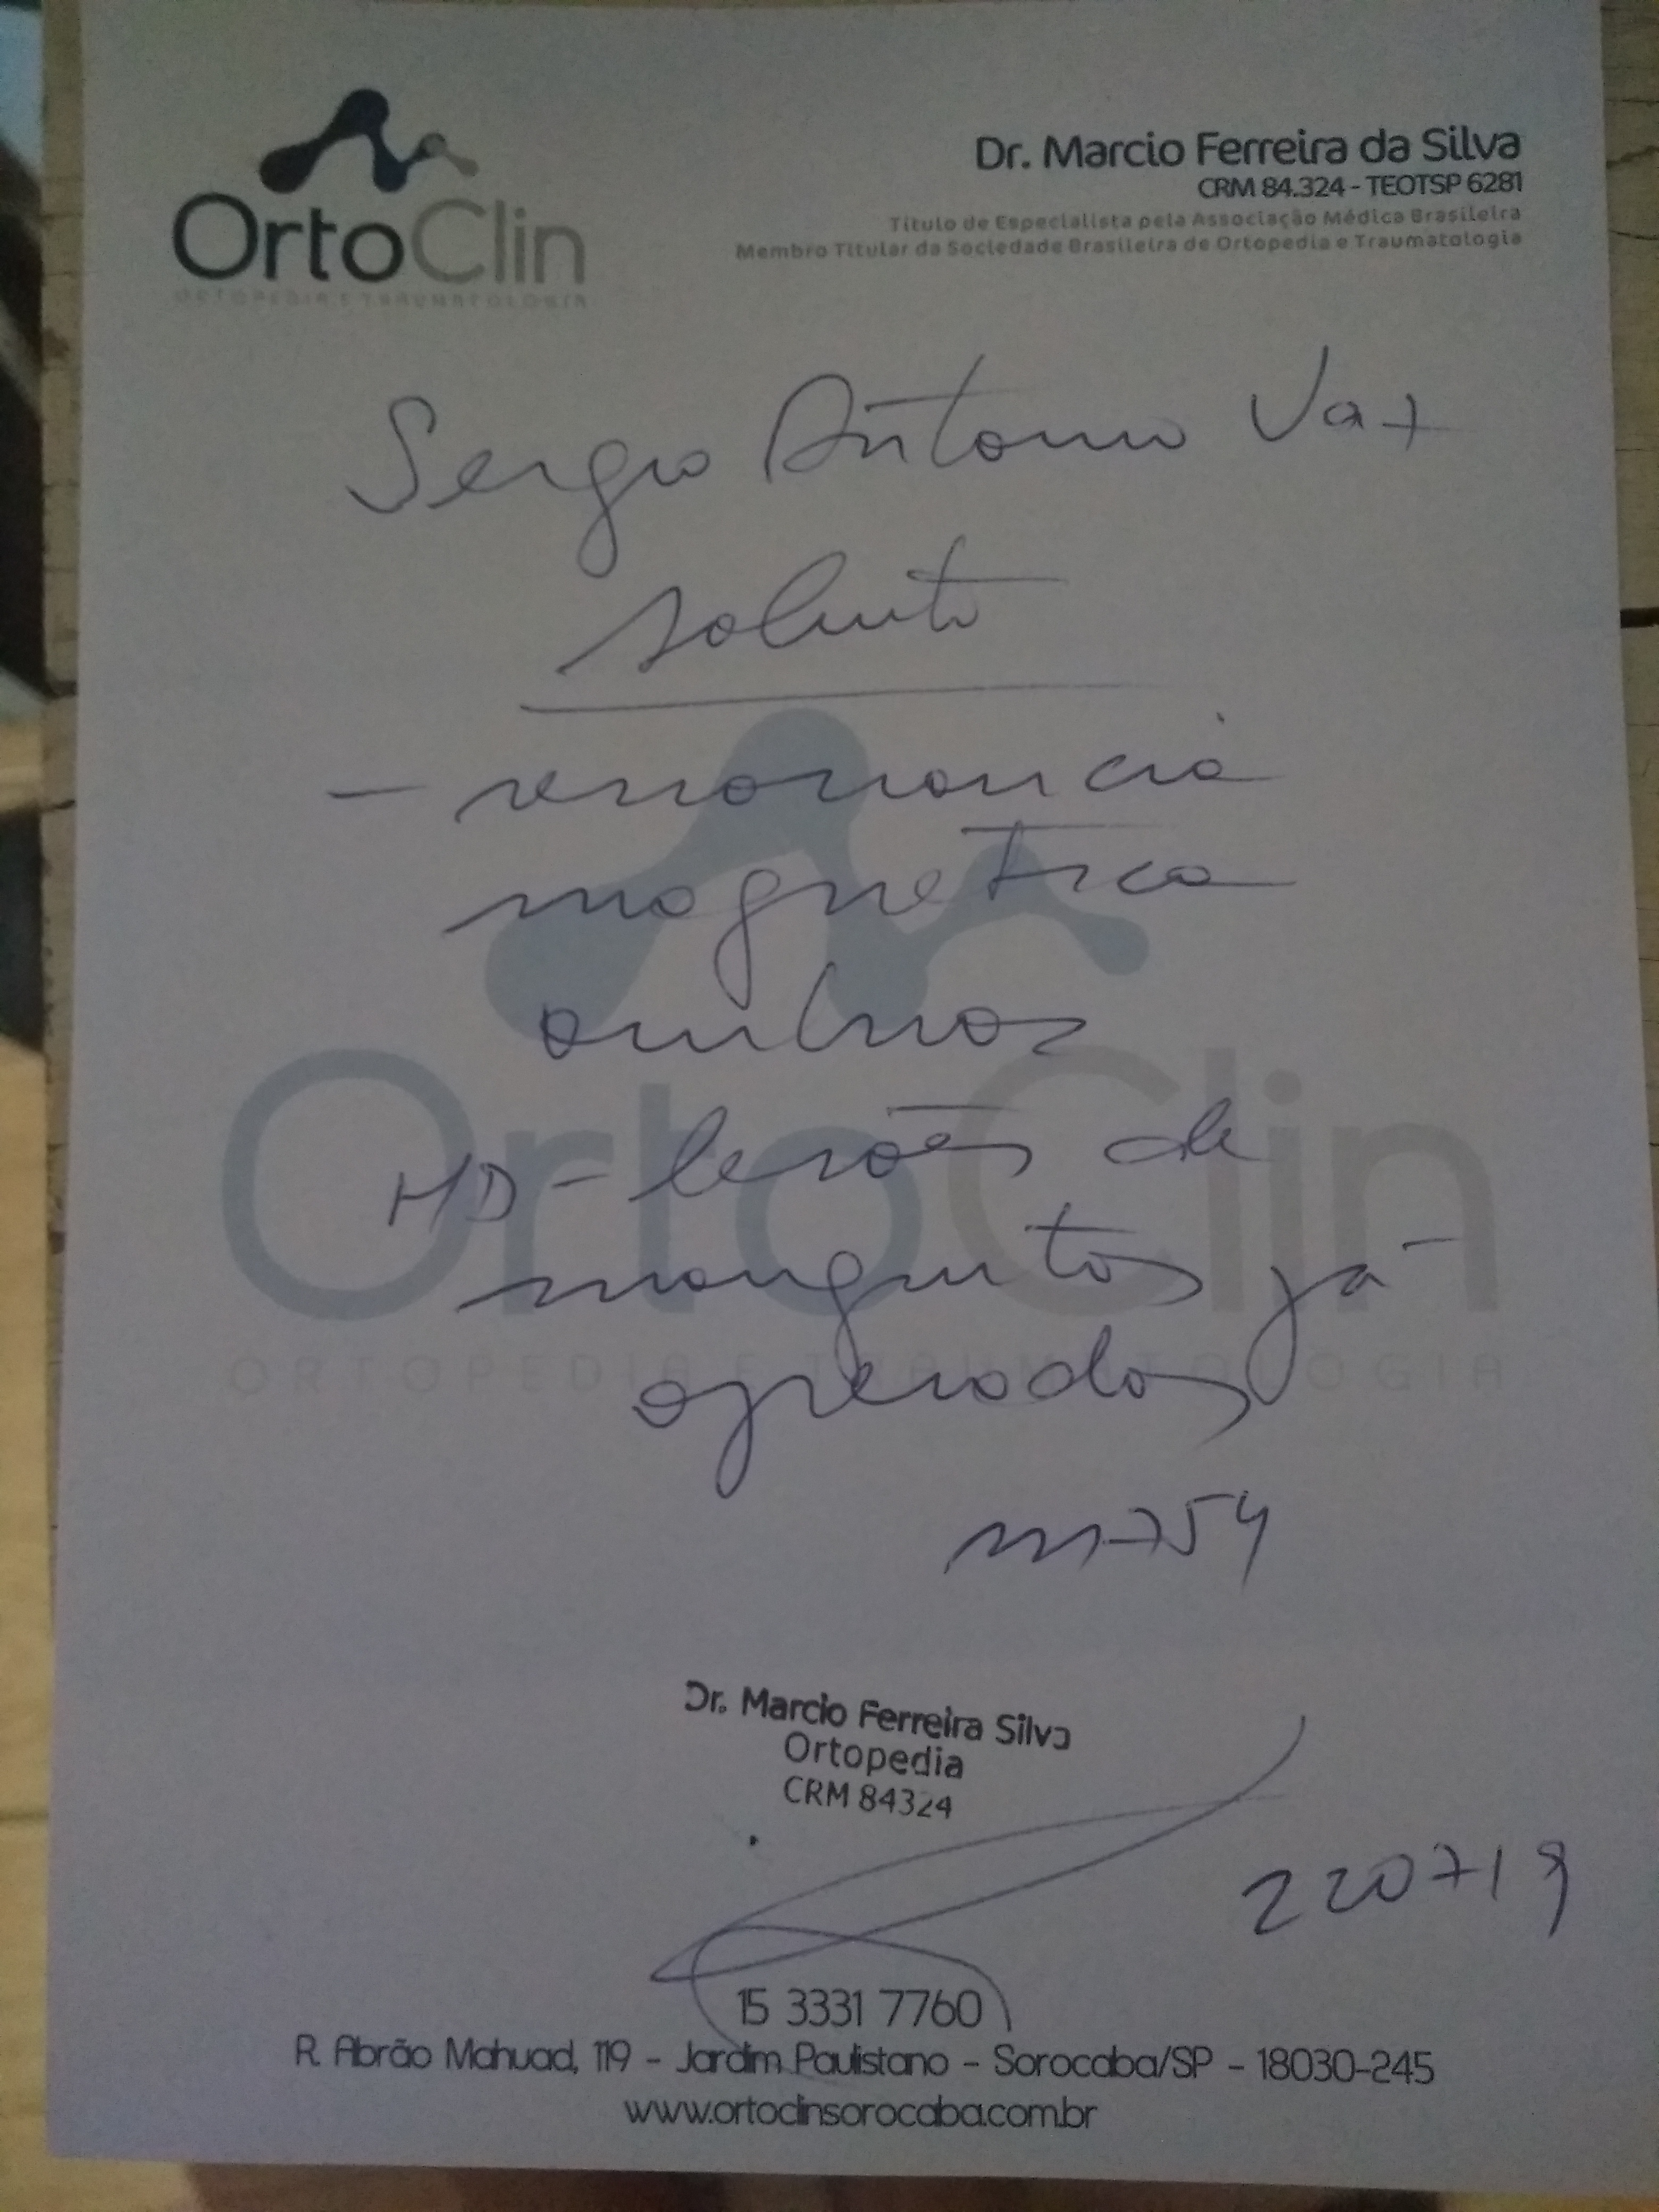 OrtoClin
ORTOPEDIA E TRAUMATOLOGIA
Dr. Marcio Ferreira da Silva
CRM 84.324 - TEOTSP 6281
Título de Especialista pela Associação Médica Brasileira
Membro Titular da Sociedade Brasileira de Ortopedia e Traumatologia
Sergio Antonio Vaz
solicito
- ressonancia
magnetica
ombros
HD - lesões de
manguitos já
operados
M754
OrtoClin
ORTOPEDIA E TRAUMATOLOGIA
Dr. Marcio Ferreira Silva
Ortopedia
CRM 84324
220719
15 3331 7760
R. Abrão Mahuad, 119 - Jardim Paulistano - Sorocaba/SP - 18030-245
www.ortoclinsorocaba.com.br